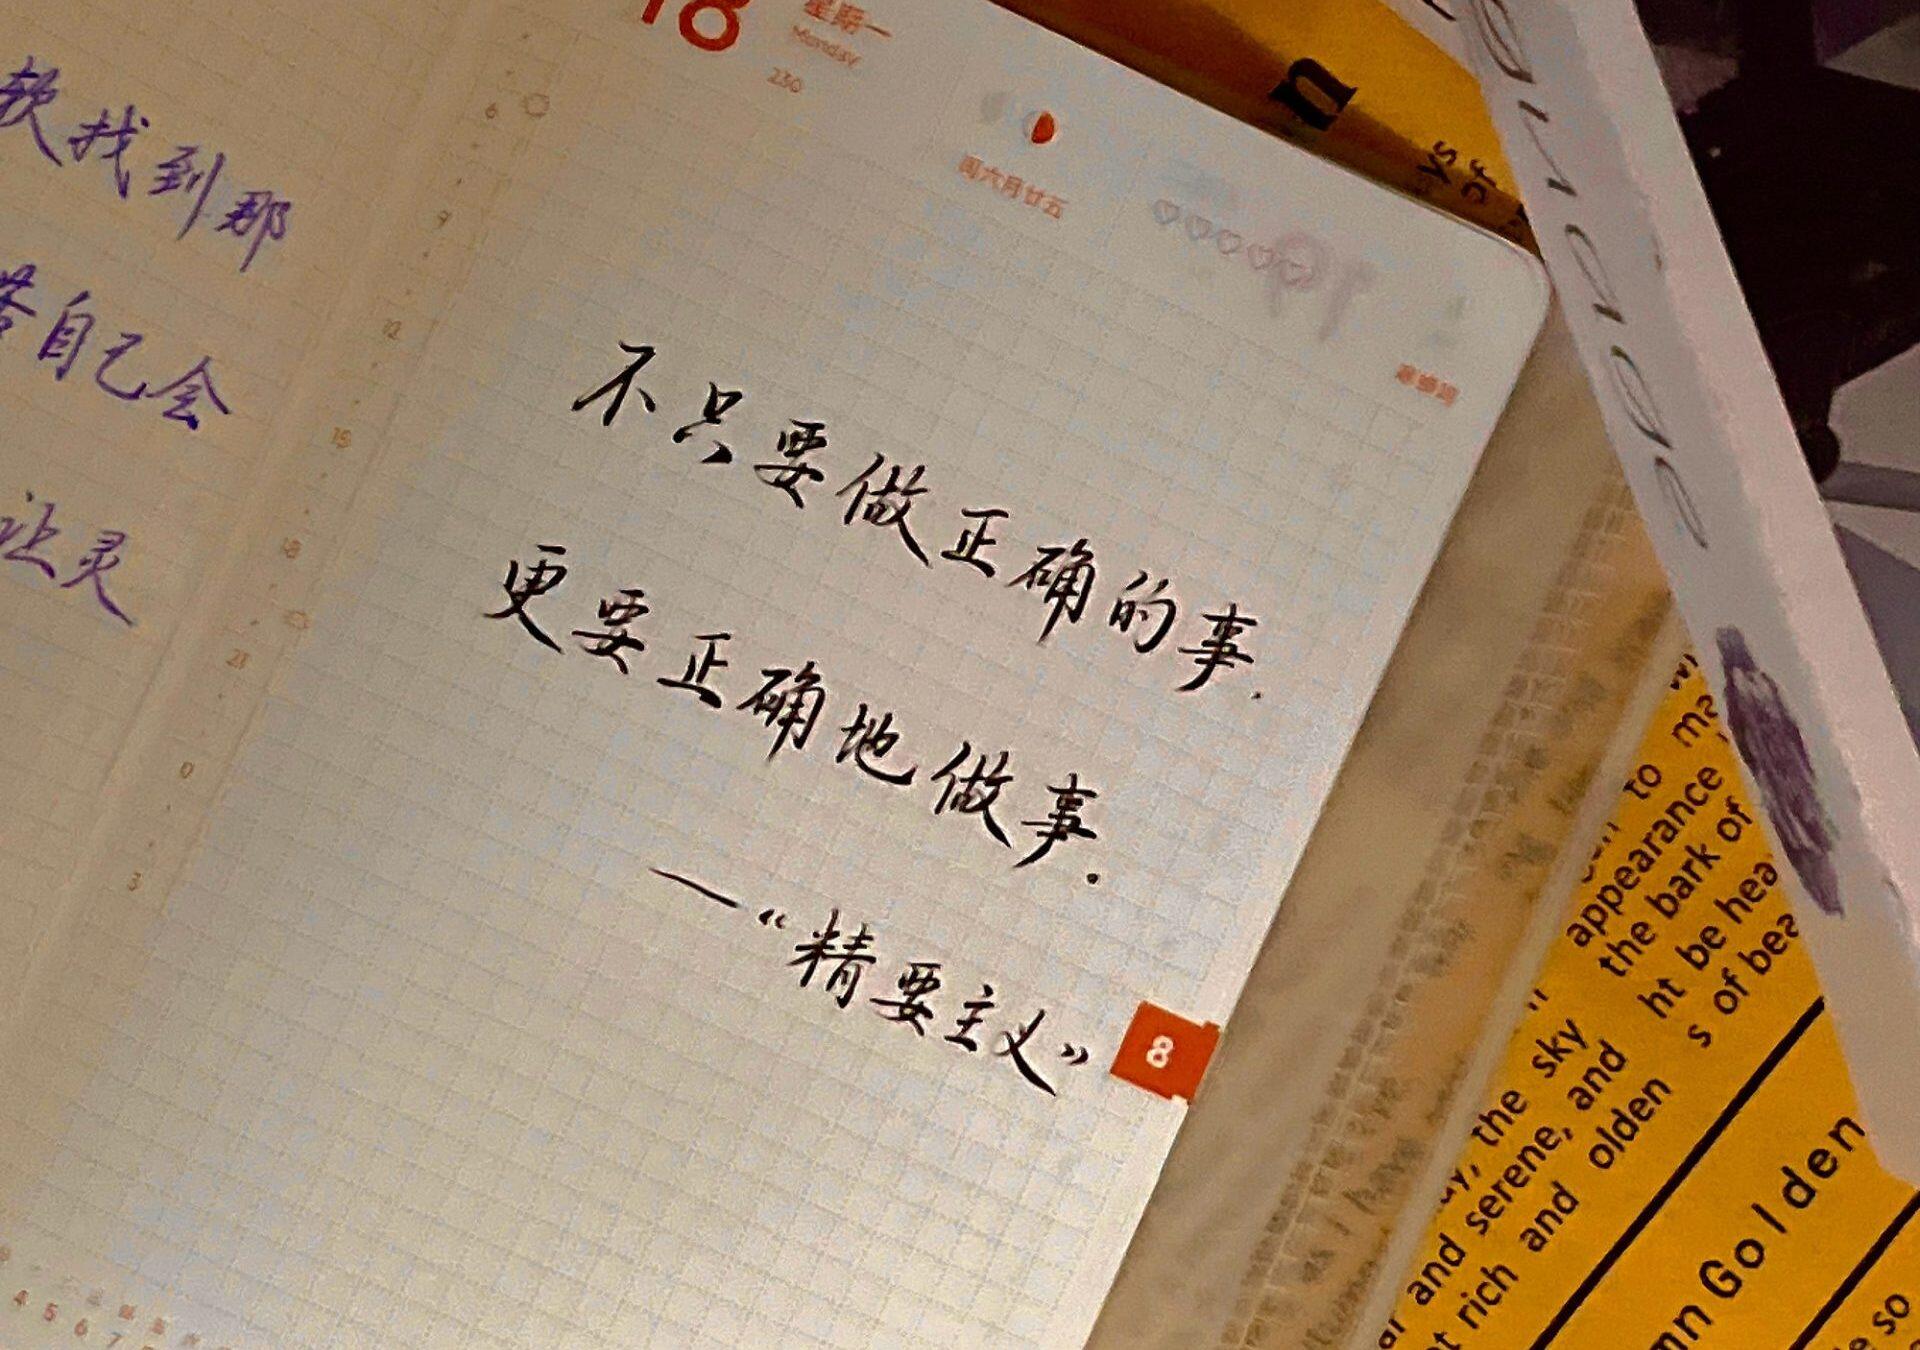 找到那
自己会
让灵
18
星期一
Monday
230
闰六月廿五
6
9
12
15
18
21
0
3
不只要做正确的事.
更要正确地做事.
—“精要主义”
8
4 5 6 7
n
ys
of
to
appearance
the bark of
ht be hea
s of bea
the sky
and serene, and
olden
rich and
Golden
so